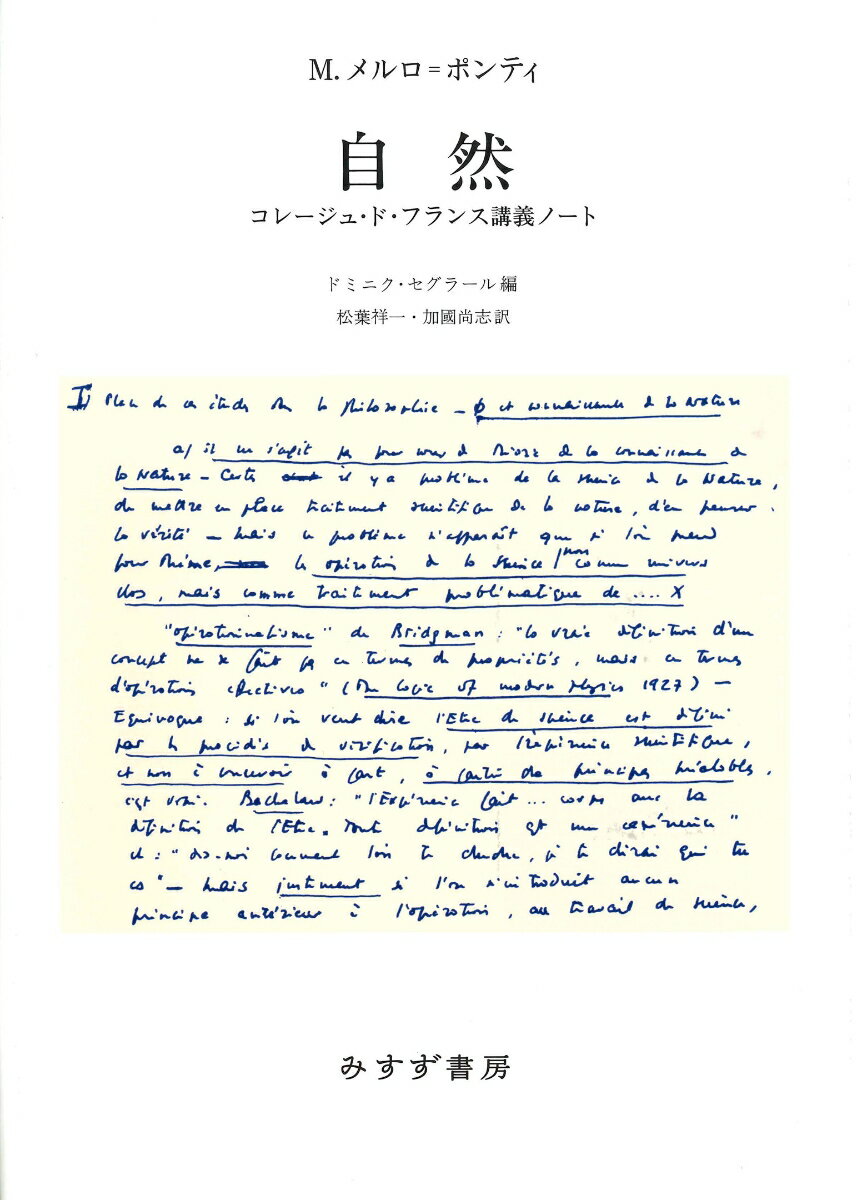 M. メルロ゠ポンティ
自然
コレージュ・ド・フランス講義ノート
ドミニク・セグラール編
松葉祥一・加國尚志訳
I) Plan de ces études sur la philosophie – et connaissance de la Nature
a) il ne s'agit pas pour nous de théorie de la connaissance de
la Nature – Certes il y a problème de la science de la Nature,
de mettre en place traitement scientifique de la nature, d'en penser
la vérité – mais ce problème n'apparaît que si l'on prend
pour thème, les opérations de la science non comme univers
clos, mais comme traitement problématique de .... X
"opérationnalisme" de Bridgman : "la vraie définition d'un
concept ne se fait pas en termes de propriétés, mais en termes
d'opérations effectives" (The Logic of modern physics 1927) –
Equivoque : si l'on veut dire l'Etre de science est défini
par les procédés de vérification, par l'expérience scientifique,
et non à concevoir à part, à partir de principes préalables,
c'est vrai. Bachelard : "l'Expérience fait ... corps avec la
définition de l'Etre. Tout définition est une expérience"
et : "dis-moi comment l'on te cherche, je te dirai qui tu
es" – mais justement si l'on n'introduit aucun
principe antérieur à l'opération, au travail de science,
みすず書房